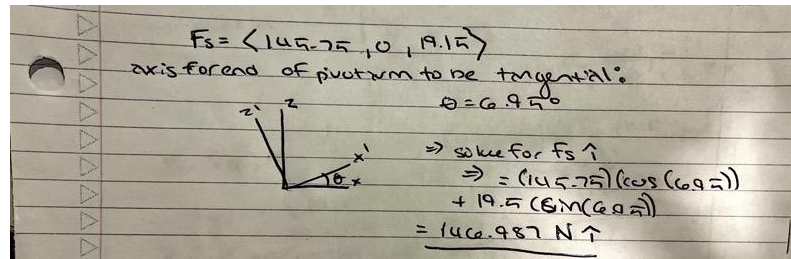 Fs = <145.75, 0, 19.15>
axis for end of pivot arm to be tangential:
θ = 6.95°
z' z
x'
θ x
⇒ solve for Fs ↑
⇒ = (145.75)(cos(6.95))
+ 19.5 (sin(6.95))
= 146.987 N ↑